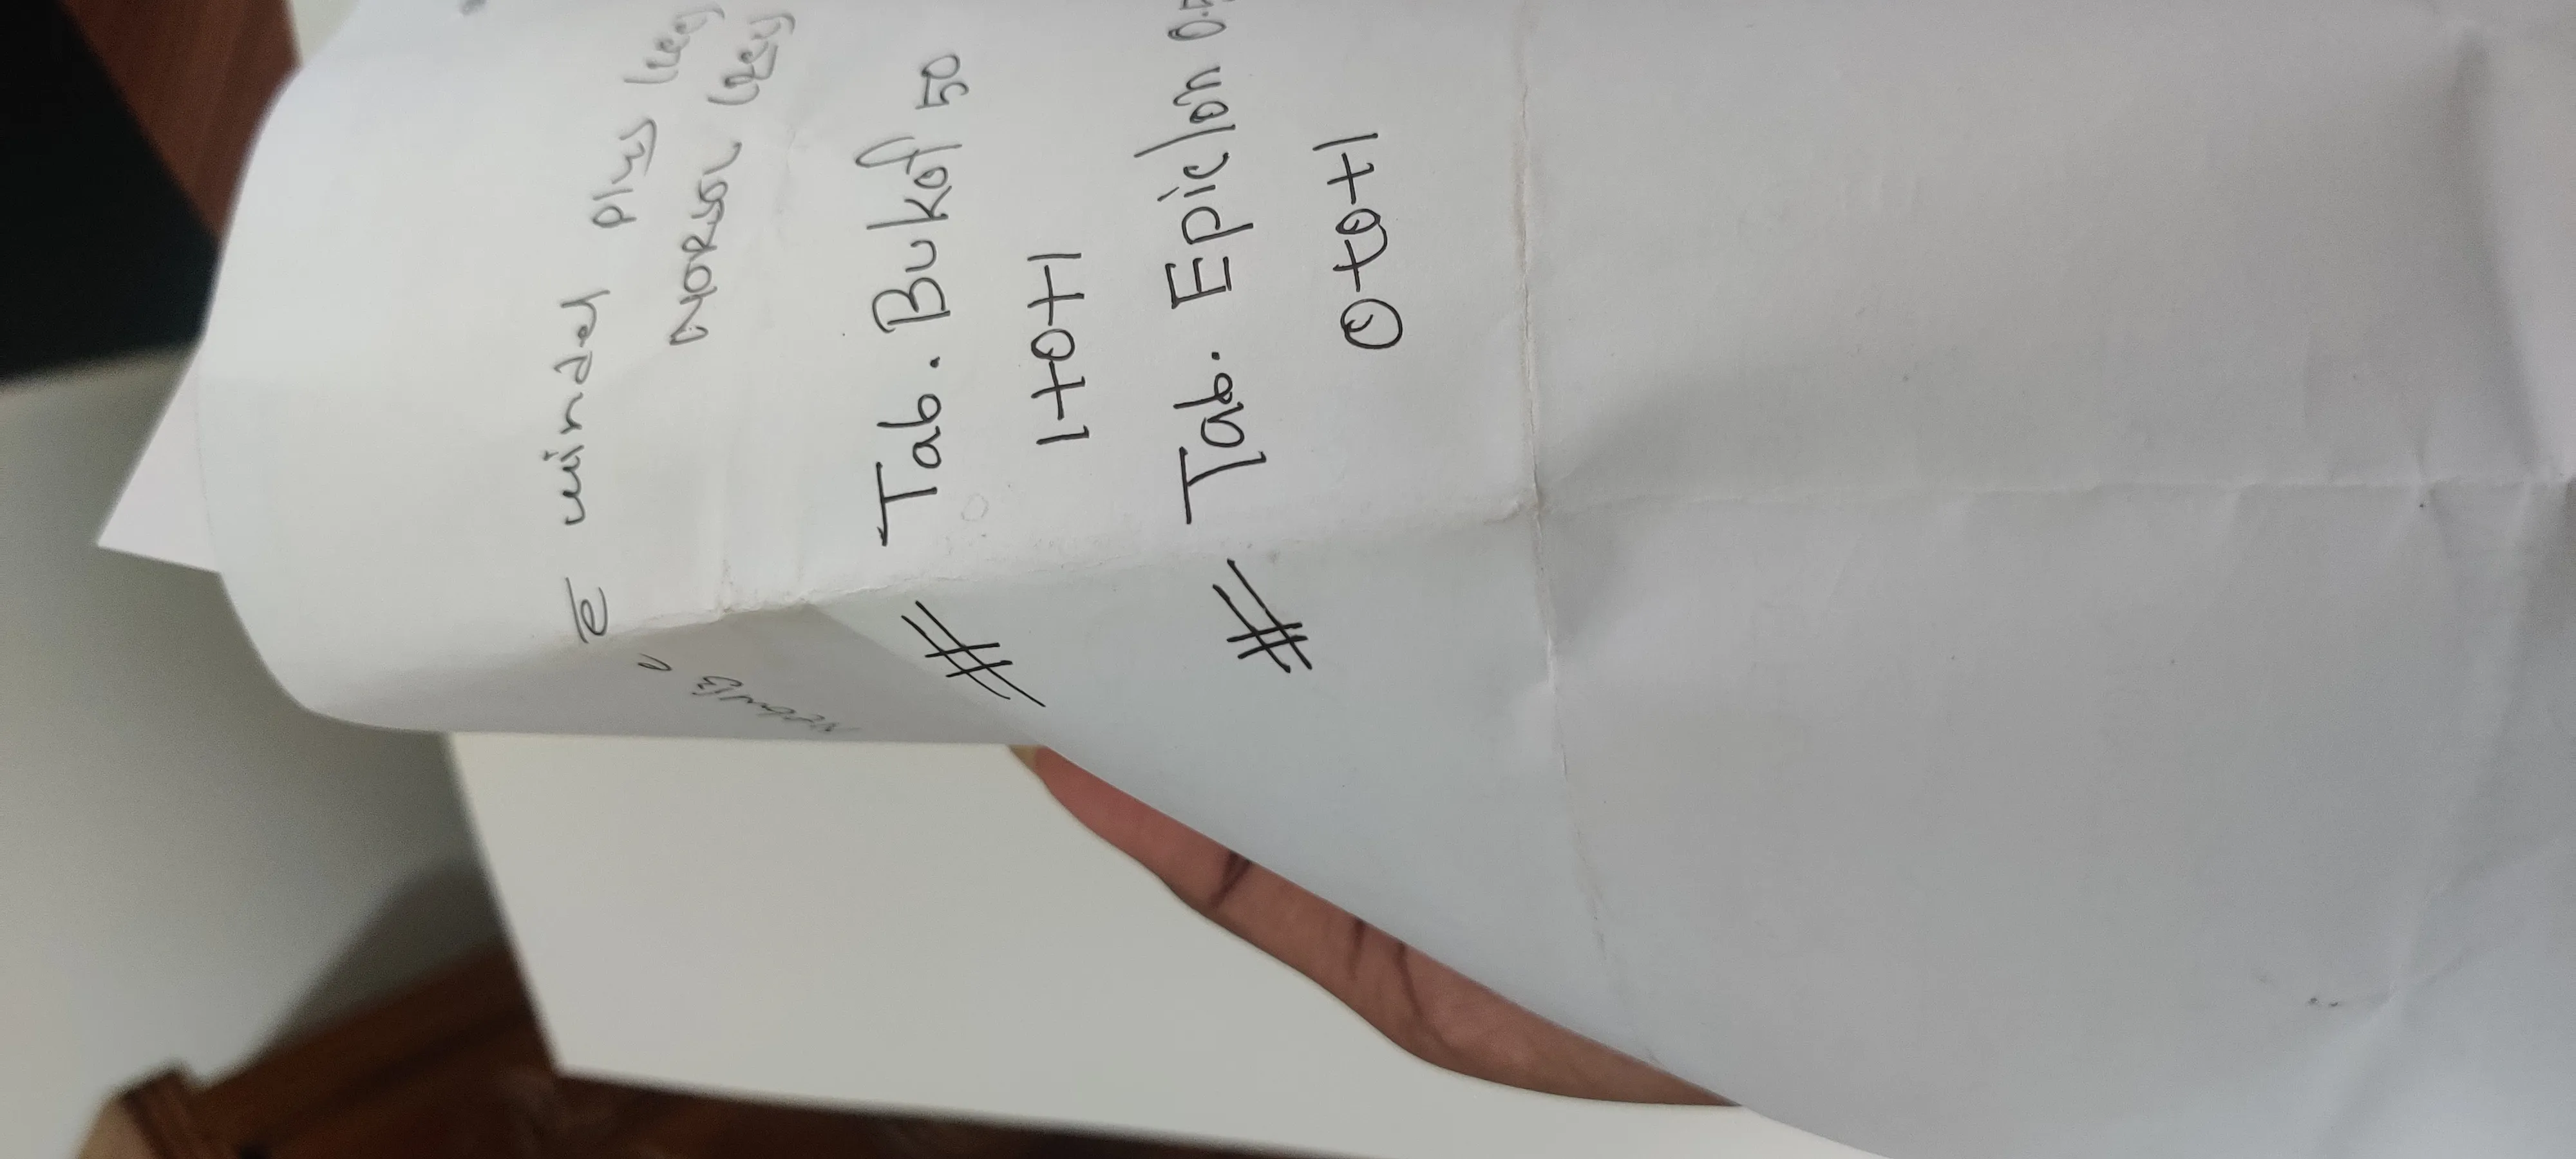 c̄ windel plus
NORSOL
# Tab. Bukof 50
1+0+1
# Tab. Epiclon 0.5
0+0+1